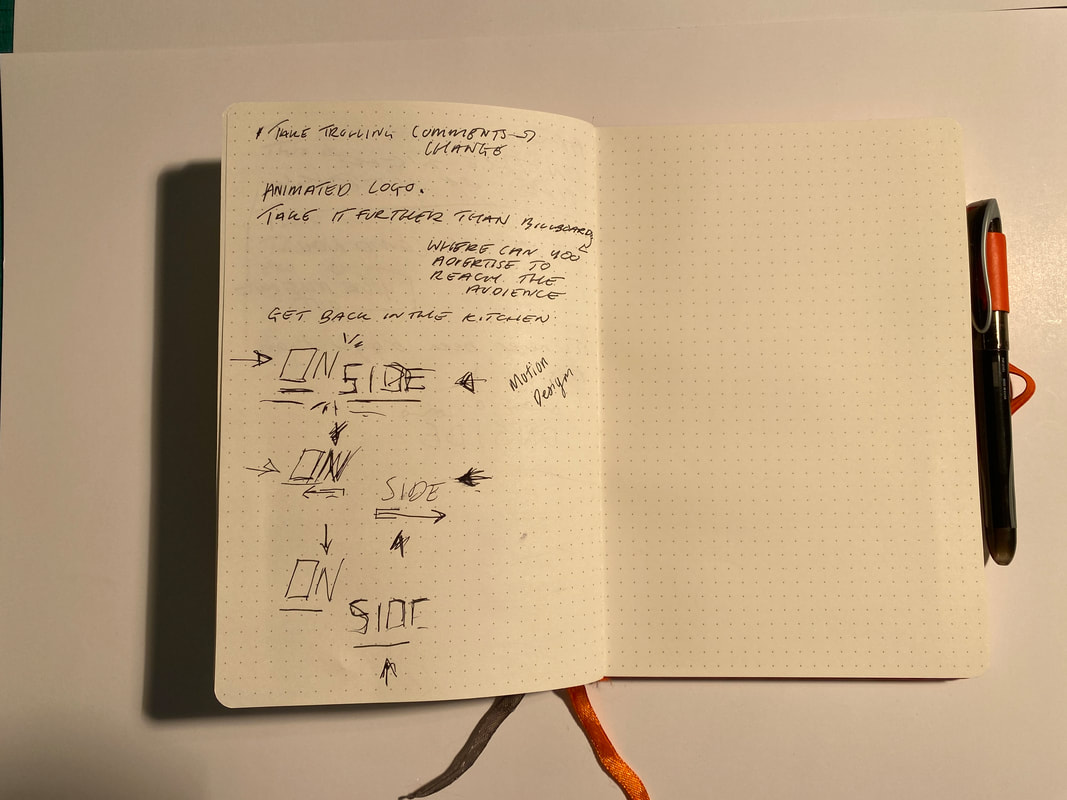 TAKE TROLLING COMMENTS
CHANGE
ANIMATED LOGO.
TAKE IT FURTHER THAN BILLBOARDS
WHERE CAN YOU
ADVERTISE TO
REACH THE
AUDIENCE
GET BACK IN THE KITCHEN
ON
SIDE
Motion
Design
ON
SIDE
ON
SIDE